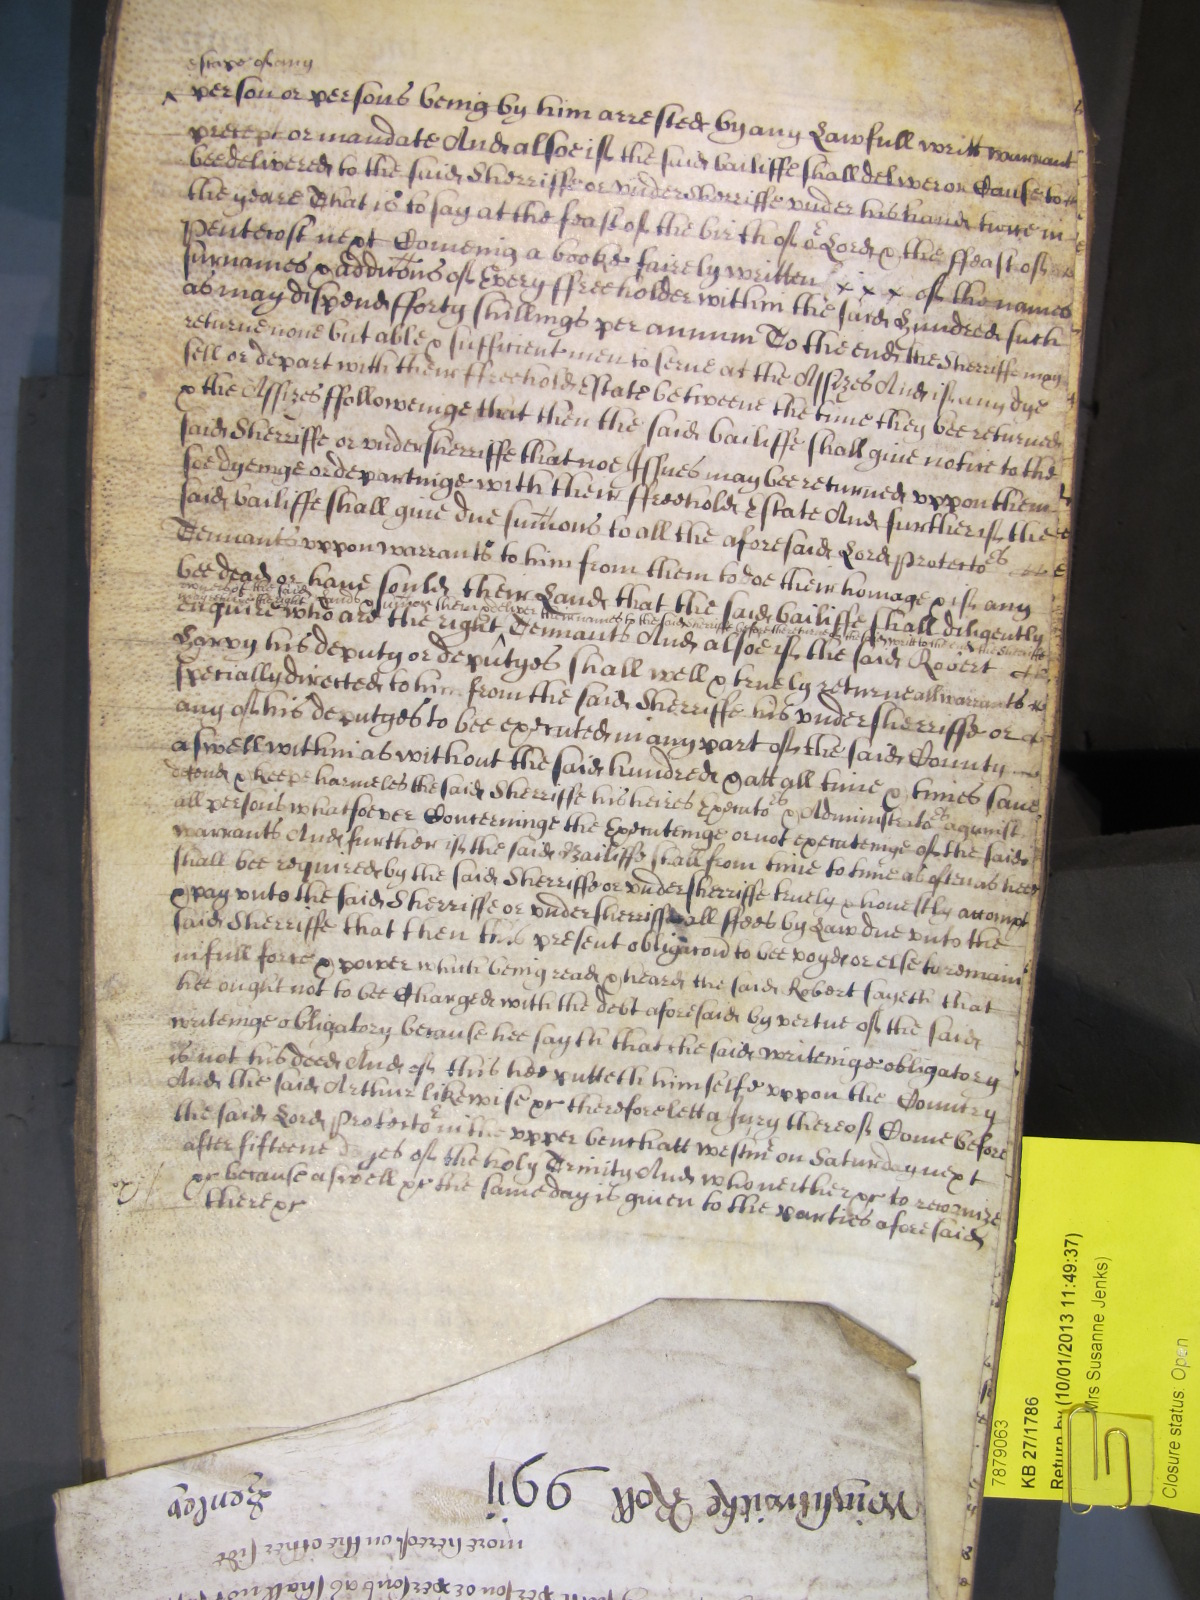 escape of any
person or persons being by him arrested by any Lawfull writt warrant
precept or mandate And alsoe if the said bailiffe shall deliver or Cause to
bee delivered to the said Sherriffe or undersherriffe under his hand twice in
the yeare That is to say at the feast of the birth of or Lord & the ffeast of
Pentecost next Comeing a booke fairely written x x x of the names
surnames & addicõns of Every ffreeholder within the said Hundred such
as may dispend fforty shillings per annum To the end the Sherriffe may
returne none but able & sufficient men to serve at the Assizes And if any dye
sell or depart with their ffreehold Estate betweene the time they bee returned
& the Assizes ffolloweinge that then the said bailiffe shall give notice to the
said Sherriffe or undersherriffe that noe Issues may bee returned uppon them
soe dyeinge or departinge with their ffreehold Estate And further if the
said bailiffe shall give due sum̃ons to all the aforesaid Lord Protectors
Tennants uppon warrants to him from them to doe their homage & if any
bee dead or have sould their Land that the said bailiffe shall diligently
enquire who are the right Tennants And alsoe if the said Robert
owners of the said Lands & sum̃on them & deliver their names to the said sherriffe before the returne of the said writt to the end the sherriffe
his deputy or deputyes shall well & truely returne all warrants
specially directed to him from the said Sherriffe his undersherriffe or
any of his deputyes to bee executed in any part of the said County
aswell within as without the said hundred & att all time & times save
defend & keepe harmeles the said Sherriffe his heires Executors & Administrators against
all persons whatsoever Concerninge the Executeinge or not executeinge of the said
warrants And further if the said Bailiffe shall from time to time as often as need
shall bee required by the said Sherriffe or undersherriffe truely & honestly accompt
& pay unto the said Sherriffe or undersherriffe all ffees by Law due unto the
said Sherriffe that then this present obligacon to bee voyd or else to remain
in full force & power which being read & heard the said Robert sayeth that
hee ought not to bee Charged with the debt aforesaid by vertue of the said
writeinge obligatory because hee sayth that the said writeinge obligatory
is not his deed And of this hee putteth himselfe uppon the Country
And the said Arthur likewise &c therefore lett a Jury thereof Come before
the said Lord Protector in the upper bench att Westmr on Saturday next
after fifteene dayes of the holy Trinity And who neither &c to recognize
&c because aswell &c the same day is given to the parties aforesaid
there &c
7879063
KB 27/1786
Return by (10/01/2013 11:49:37)
Mrs Susanne Jenks)
Closure status: Open
Roll
Henley
more hereof on the other side
person or persons as shall not